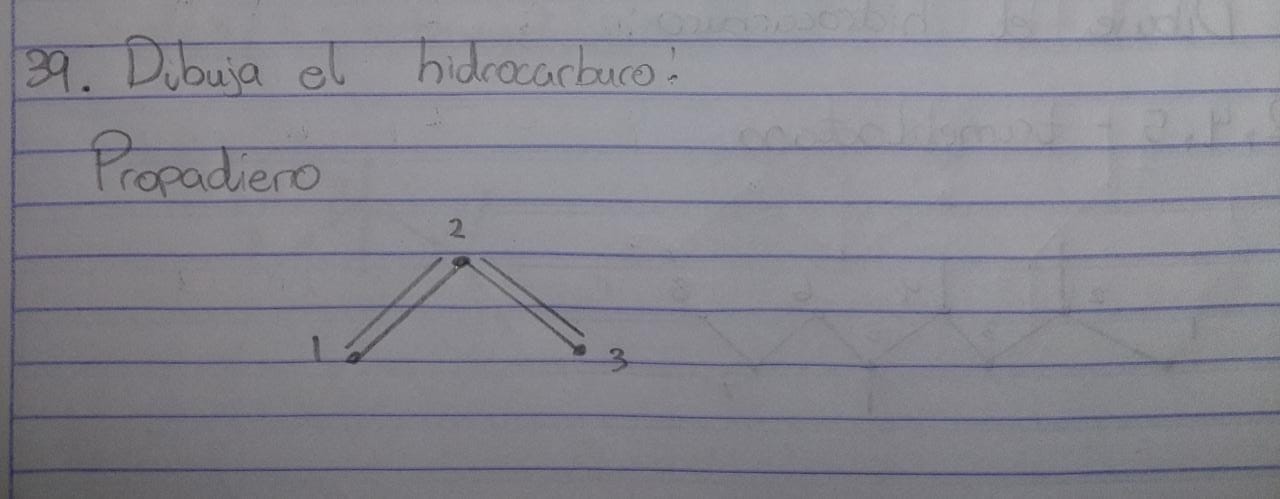 39. Dibuja el hidrocarburo:
Propadieno
2
1 3